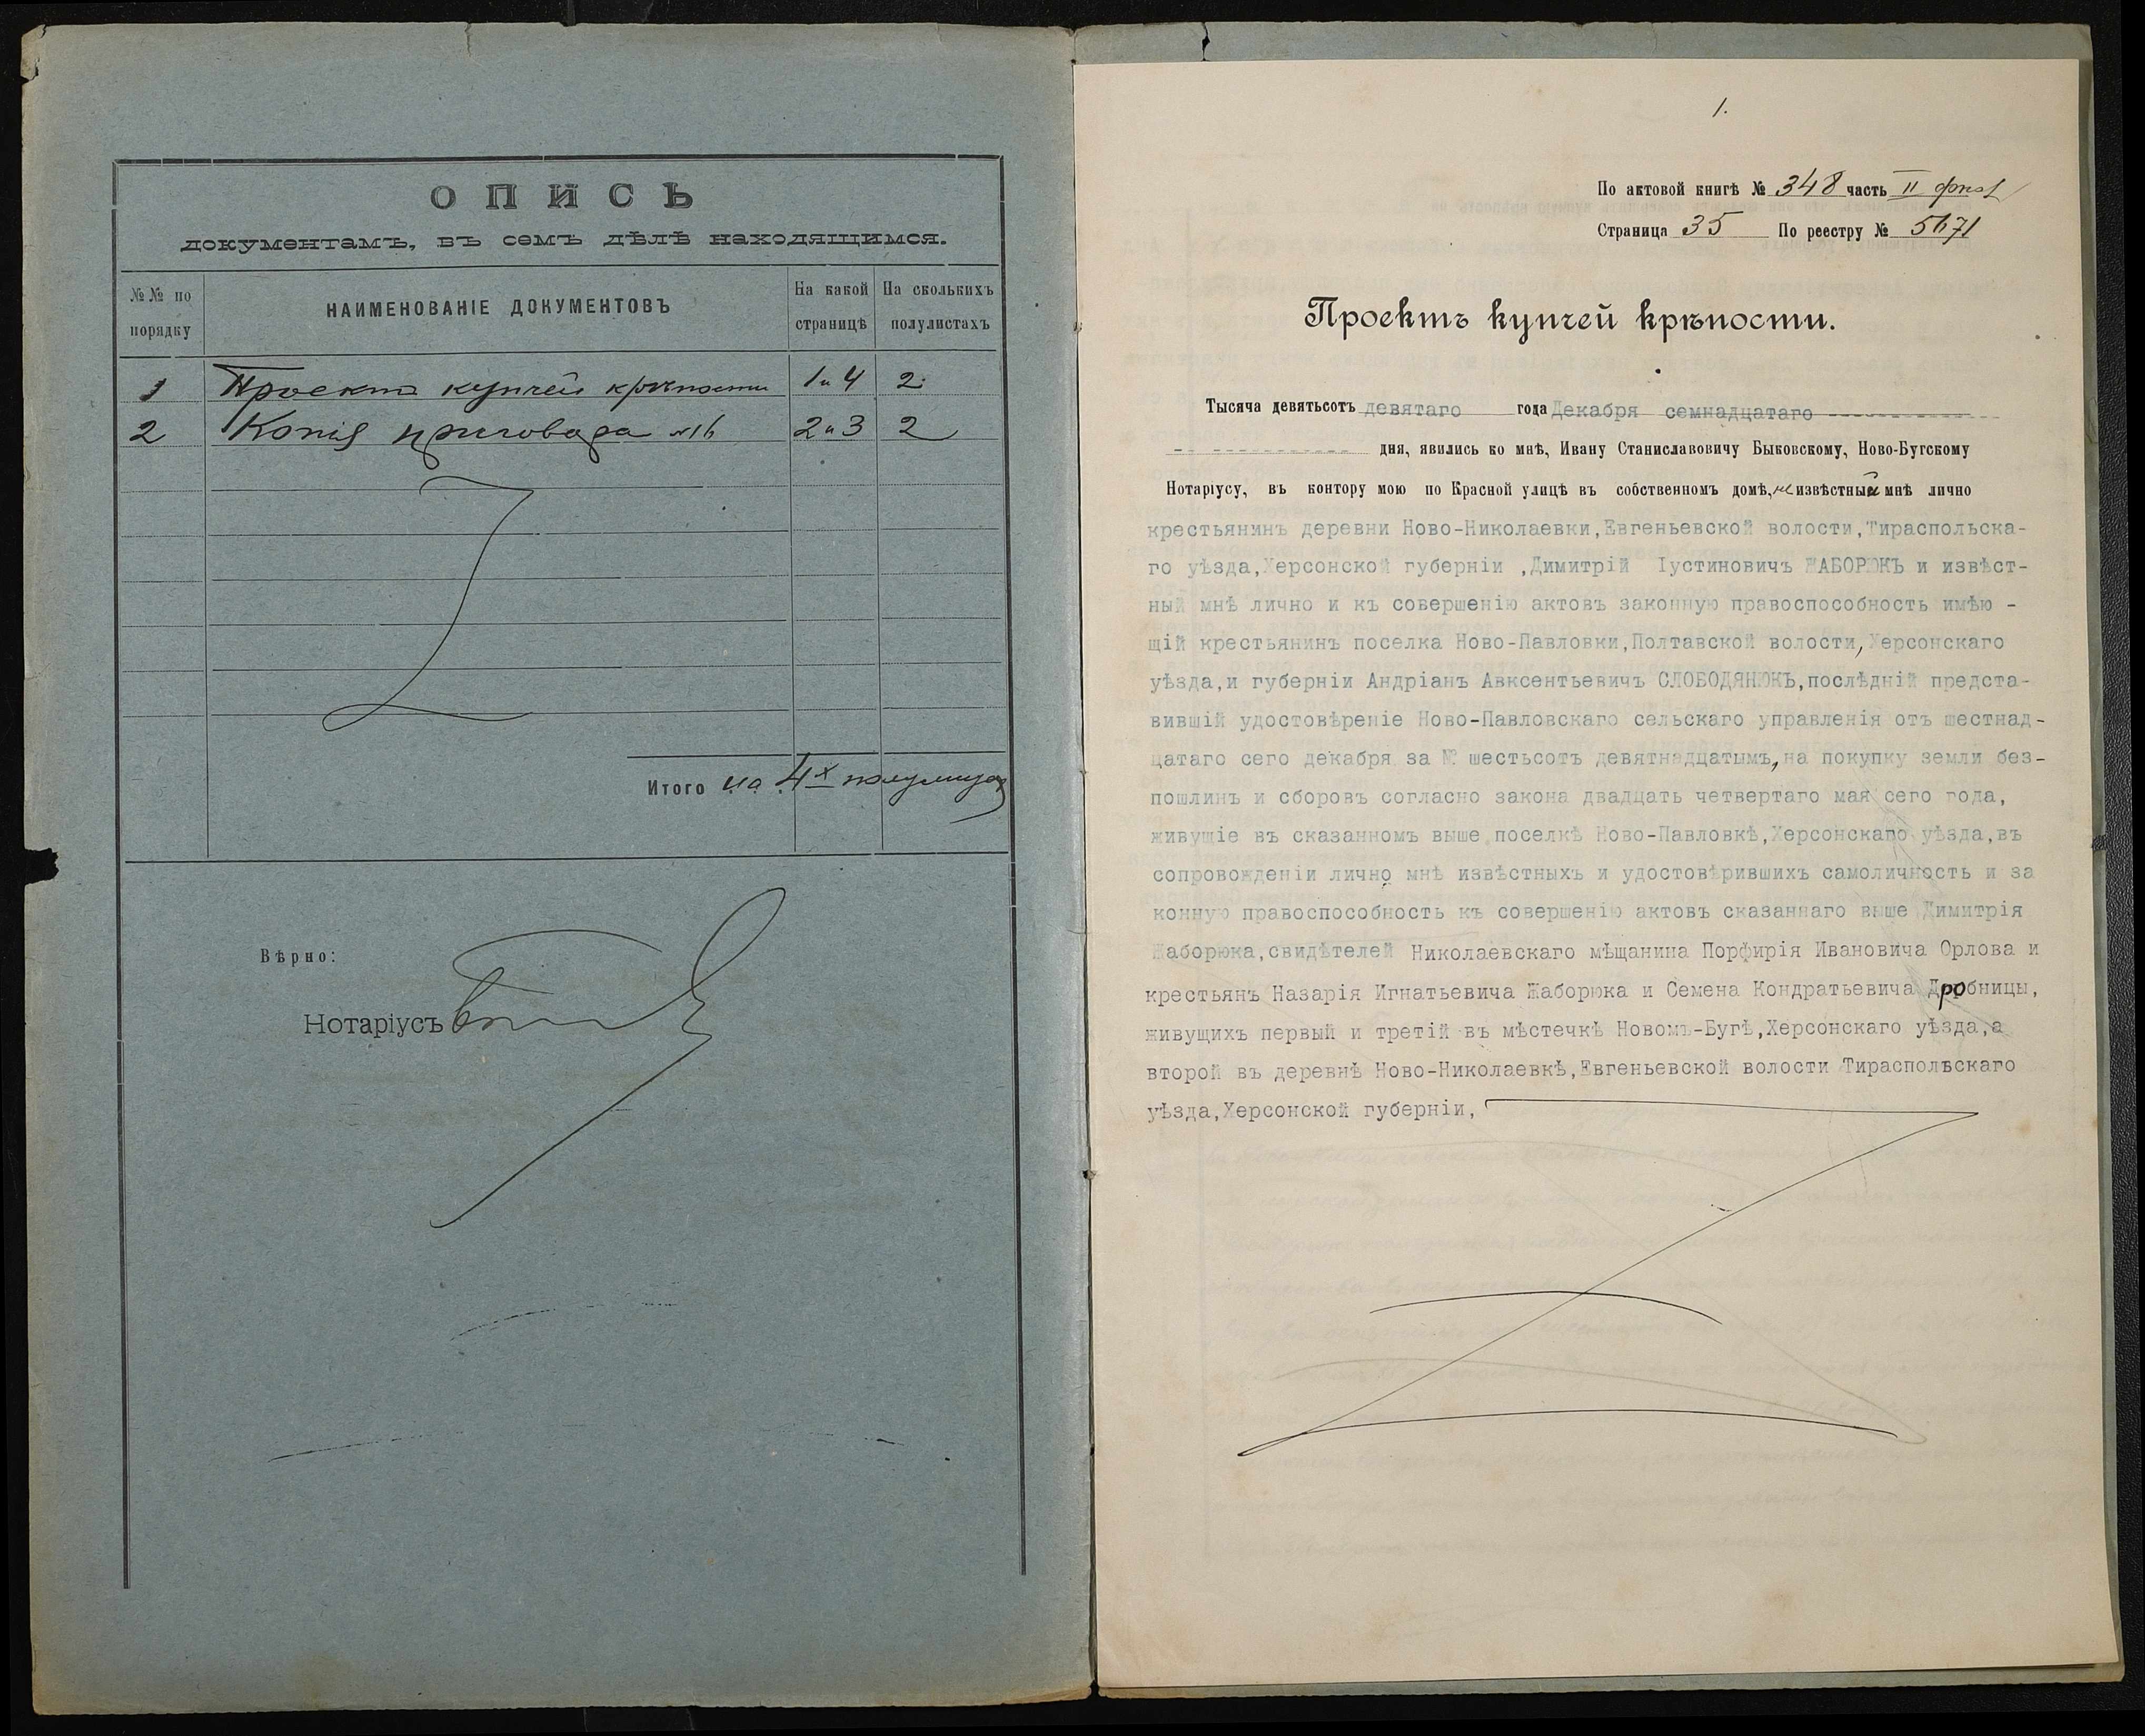 ОПИСЬ
документамъ, въ семъ дѣлѣ находящимся.
№№ по порядку
НАИМЕНОВАНІЕ ДОКУМЕНТОВЪ
На какой страницѣ
На сколькихъ полулистахъ
1 Проектъ купчей крѣпости 1 и 4 2
2 Копія приговора №16 2 и 3 2
Итого на 4х полулистах
Вѣрно:
Нотаріусъ
1.
По актовой книгѣ № 348 часть II
Страница 35 По реестру № 5671
Проектъ купчей крѣпости.
Тысяча девятьсотъ девятаго года Декабря семнадцатаго
дня, явились ко мнѣ, Ивану Станиславовичу Быковскому, Ново-Бугскому
Нотаріусу, въ контору мою по Красной улицѣ въ собственномъ домѣ, неизвѣстный мнѣ лично
крестьянинъ деревни Ново-Николаевки,Евгеньевской волости,Тираспольска-
го уѣзда,Херсонской губерніи ,Димитрій Іустиновичъ ЖАБОРЮКЪ и извѣст-
ный мнѣ лично и къ совершенію актовъ законную правоспособность имѣю -
щій крестьянинъ поселка Ново-Павловки,Полтавской волости, Херсонскаго
уѣзда,и губерніи Андріанъ Авксентьевичъ СЛОБОДЯНЮКЪ,послѣдній предста-
вившій удостовѣреніе Ново-Павловскаго сельскаго управленія отъ шестнад-
цатаго сего декабря за № шестьсотъ девятнадцатымъ, на покупку земли без-
пошлинъ и сборовъ согласно закона двадцать четвертаго мая сего года,
живущіе въ сказанномъ выше поселкѣ Ново-Павловкѣ,Херсонскаго уѣзда,въ
сопровожденіи лично мнѣ извѣстныхъ и удостовѣрившихъ самоличность и за
конную правоспособность къ совершенію актовъ сказаннаго выше Димитрія
Жаборюка,свидѣтелей Николаевскаго мѣщанина Порфирія Ивановича Орлова и
крестьянъ Назарія Игнатьевича Жаборюка и Семена Кондратьевича Дробницы,
живущихъ первый и третій въ мѣстечкѣ Новомъ-Бугѣ,Херсонскаго уѣзда,а
второй въ деревнѣ Ново-Николаевкѣ,Евгеньевской волости Тираспольскаго
уѣзда,Херсонской губерніи,